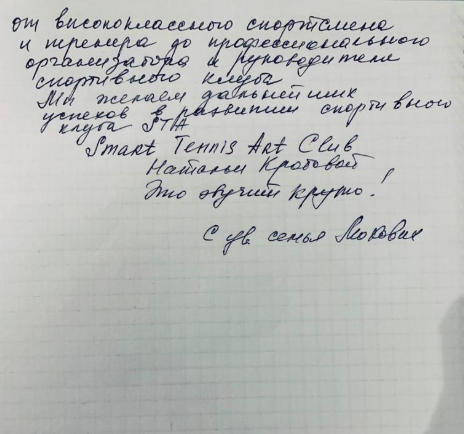 от высококлассного спортсмена
и тренера до профессионального
организатора и руководителя
спортивного клуба.
Мы желаем дальнейших
успехов в развитии спортивного
клуба STA
Smart Tennis Art Club
Натальи Кротовой
Это звучит круто!
С ув. семья